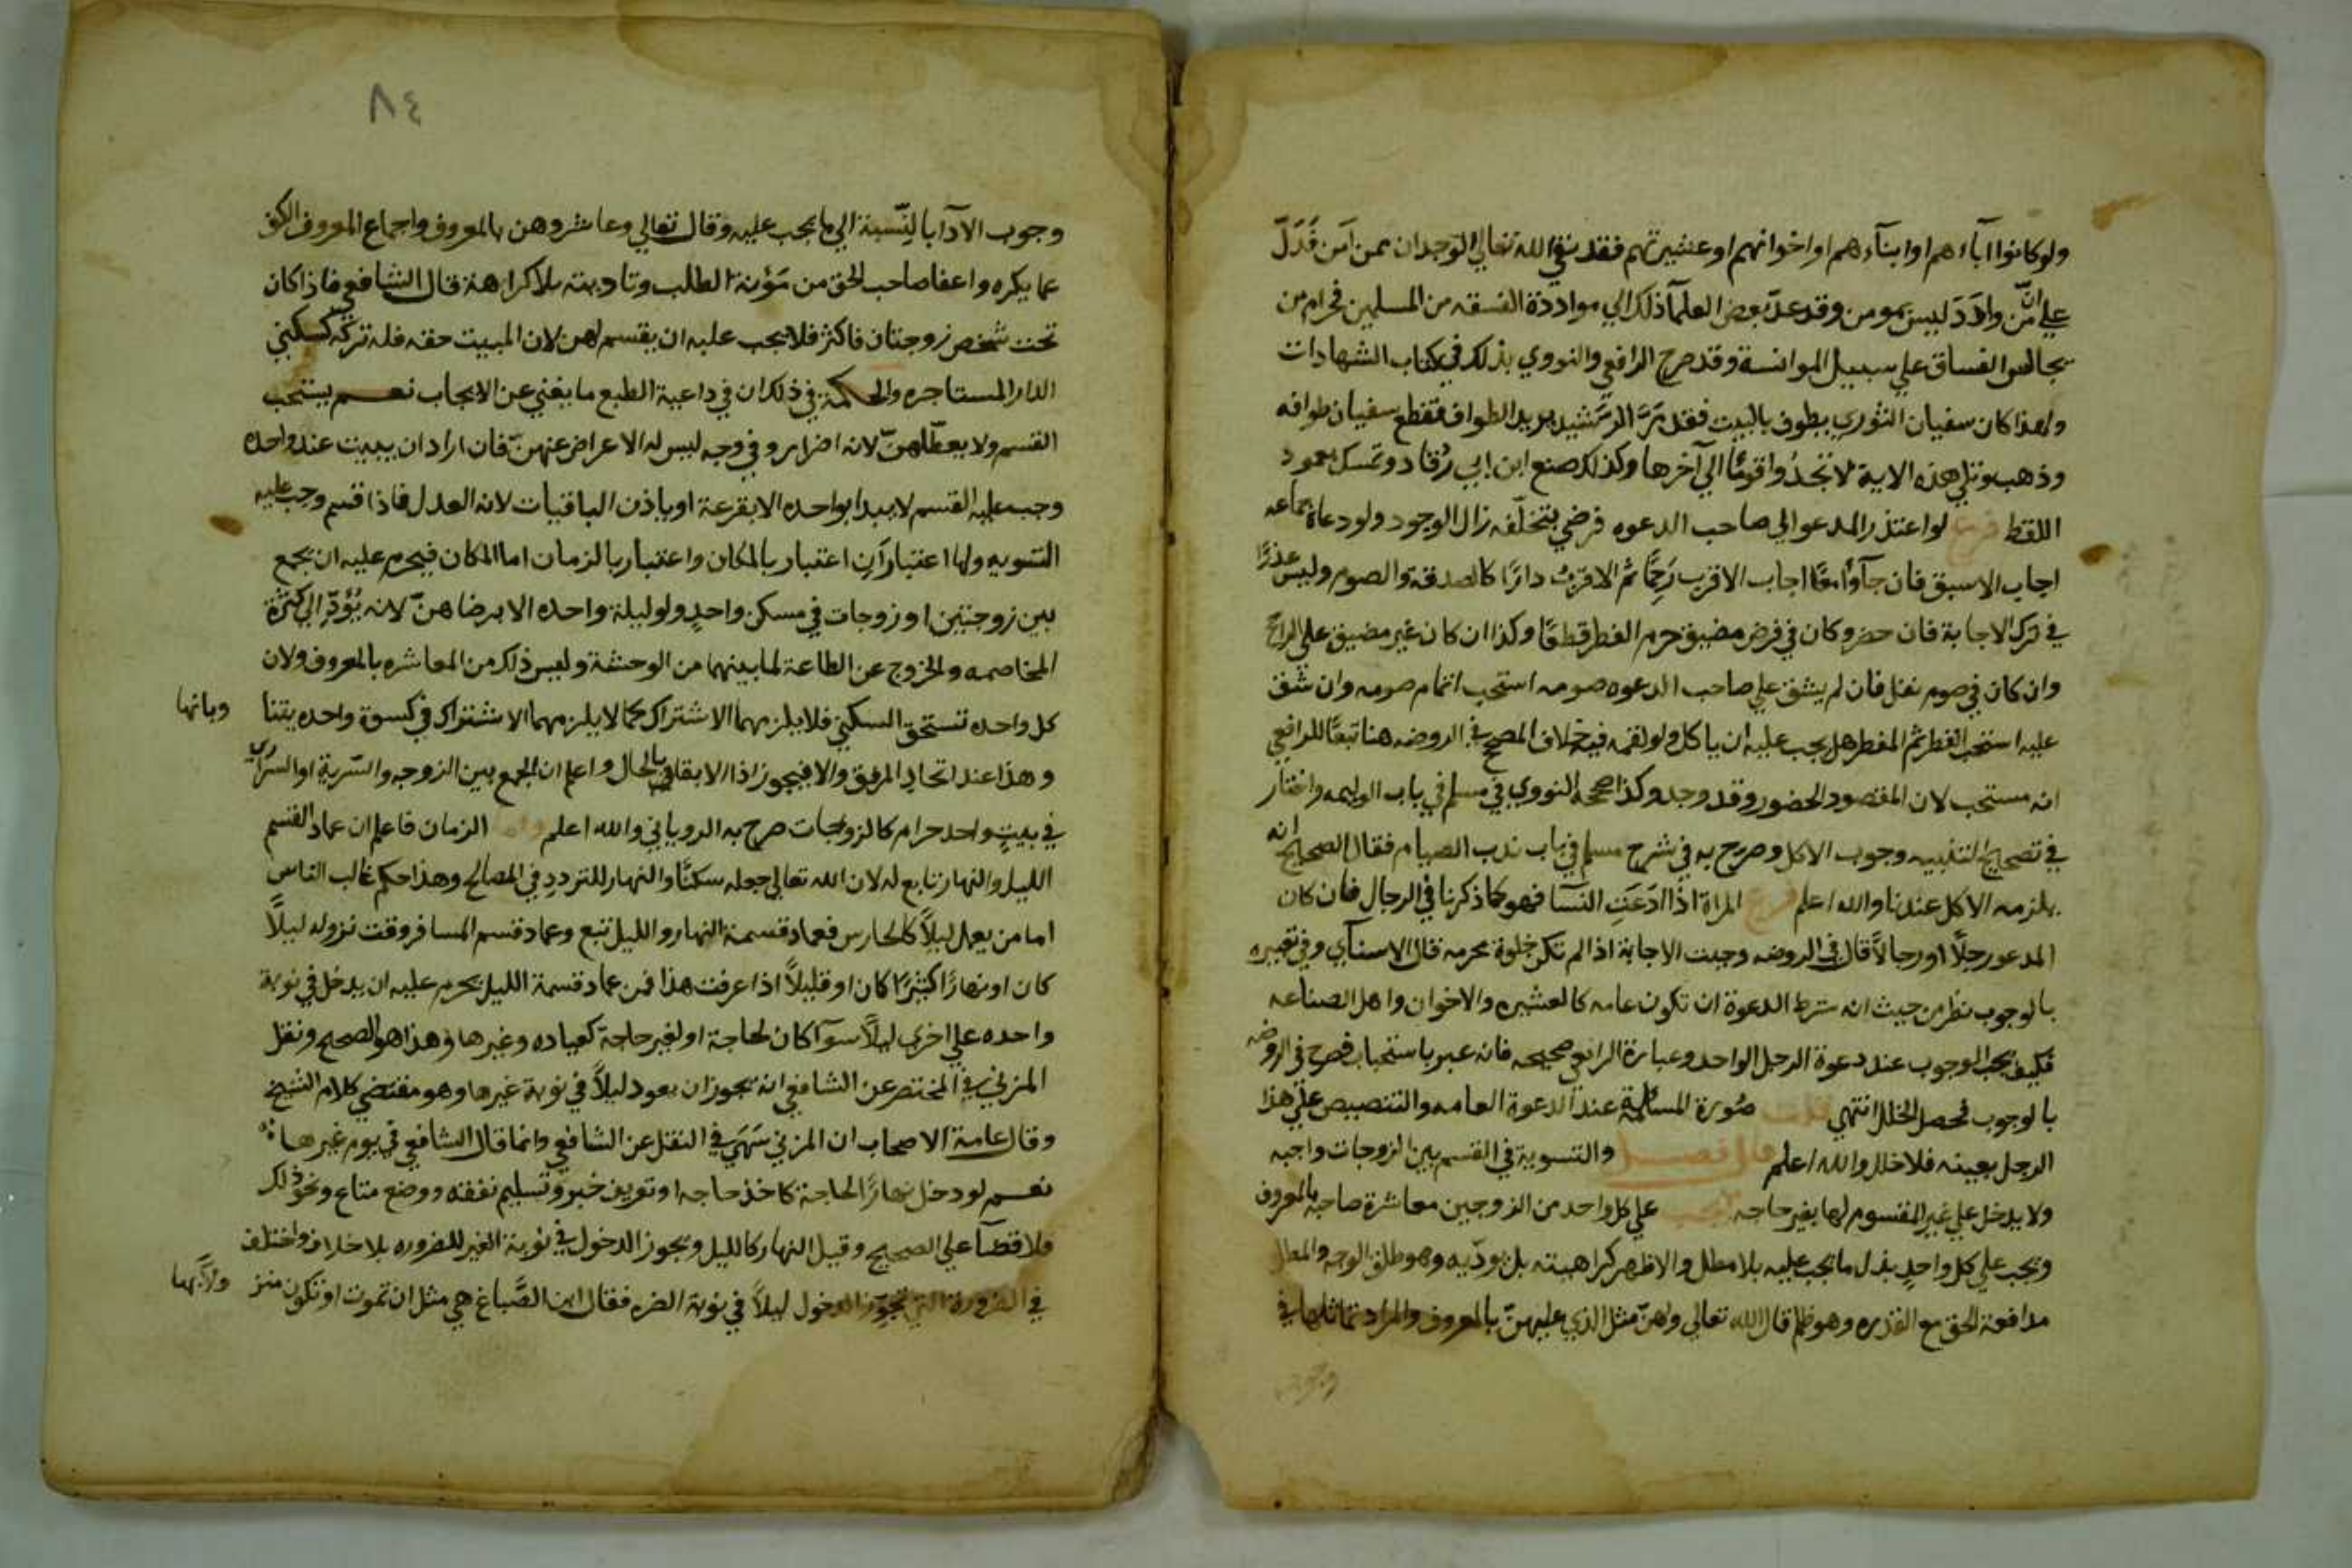 ولو كانوا اباءهم او ابنآءهم او اخوانهم او عشيرتهم فقد نفى الله تعالي الوجدان ممن امن فَدَلّ
علي انّ من وادَدَ ليس بمومن وقد عدّ بعض العلمآ ذلك الي مواددة الفسقه من المسلمين فحرام من
يجالس الفساق علي سبيل الموانسة وقد صرح الرافعي والنووي بذلك في كتاب الشهادات
ولهذا كان سفيان الثوري يطوف بالبيت فقدم الرّشيد يريد الطواف فقطع سفيان طوافه
وذهب وتلي هذه الاية لا تجدُ قومًا الي آخرها وكذلك صنع ابن ابي رُقاد وتمسك بعمود
اللفظ فرع لو اعتذر المدعو الي صاحب الدعوه فرضي بتخلّفه زال الوجوب ولو دعاه جماعه
اجاب الاسبق فان جآوا معًا اجاب الاقرب رَحِمًا ثم الاقرب دارًا كالصدقة والصوم وليس عذرًا
في ترك الاجابة فان حضر وكان في فرض مضيق حرم الفطر قطعًا وكذا ان كان غير مضيق علي الراجح
وان كان في صوم نفل فان لم يشق علي صاحب الدعوه صومه استحب اتمام صومه وان شق
عليه استحب الفطر ثم المفطر هل يجب عليه ان ياكل ولو لقمه فيه خلاف المصحح في الروضه هنا تبعًا للرافعي
انه مستحب لان المقصود الحضور وقد وجد وكذا صححه النووي في مسلم في باب الوليمه واختار
في تصحيح التنبيه وجوب الاكل وصرح به في شرح مسلم في باب ندب الصيام فقال الصحيح انه
يلزمه الاكل عندنا والله اعلم فرع المراة اذا ادعت النسآ فهو كما ذكرنا في الرجال فان كان
المدعو رجلًا او رجالًا قال في الروضه وجبت الاجابة اذا لم تكن خلوة محرمه قال الاسنآي وفي تعبيره
بالوجوب نظر من حيث انه شرط الدعوة ان تكون عامه كالعشيره والاخوان واهل الصناعه
فكيف يجب الوجوب عند دعوة الرجل الواحد وعبارة الرافعي صحيحه فانه عبر باستحباب فصرح في الروضه
بالوجوب فحصل الخلل انتهي قلت صُورة المسالة عند الدعوة العامه والتنصيص علي هذا
الرجل بعينه فلا خلل والله اعلم قال فصل والتسوية في القسم بين الزوجات واجبه
ولا يدخل علي غير المقسوم لها بغير حاجه يجب علي كل واحد من الزوجين معاشرة صاحبه بالمعروف
ويجب علي كل واحدٍ بذل ما يجب عليه بلا مطل ولا اظهار كراهيته بل يودّيه وهو طلق الوجه والمطل
مدافعة الحق مع القدره وهو ظلم قال الله تعالي ولهنّ مثل الذي عليهنّ بالمعروف والمراد تماثلها في
وجوب
٨٤
وجوب الآدآ بالنّسبة الي ما يجب عليه وقال تعالي وعاشروهن بالمعروف واجماع المعروف الكف
عما يكره واعفا صاحب الحق من مَؤنة الطلب وتاديته بلا كراهة قال الشافعي فاذا كان
تحت شخص زوجتان فاكثر فلا يجب عليه ان يقسم لهن لان المبيت حقه فله تركه كسكني
الدار المستاجره والحكمة في ذلك ان في داعية الطبع ما يغني عن الايجاب نعم يستحب
القسم ولا يعطّلهنّ لانه اضرار وفي وجه ليس له الاعراض عنهنّ فان اراد ان يبيت عند واحده
وجب عليه القسم لا يبدا بواحده الا بقرعة او باذن الباقيات لانه العدل فاذا قسم وجب عليه
التسويه ولها اعتباران اعتبار بالمكان واعتبار بالزمان اما المكان فيحرم عليه ان يجمع
بين زوجتين او زوجات في مسكن واحدٍ ولو ليلة واحده الا برضاهنّ لانه يُؤدّي الي كثرة
المخاصمه والخروج عن الطاعة لما بينهما من الوحشة وليس ذلك من المعاشره بالمعروف ولان
كل واحده تستحق السكني فلا يلزمهما الاشتراك كما لا يلزمهما الاشتراك في كسوة واحده يتنا وبانها
وهذا عند اتحاد المرفق والا فيجوز اذا الا بقا في بالحال واعلم ان الجمع بين الزوجه والسّرية او السراري
في بيتٍ واحد حرام كالزوجات صرح به الروياني والله اعلم واما الزمان فاعلم ان عماد القسم
الليل والنهار تابع له لان الله تعالي جعله سكنًا والنهار للتردد في المصالح وهذا حكم غالب الناس
اما من يعمل ليلًا كالحارس فعماد قسمة النهار والليل تبع وعماد قسم المسافر وقت نزوله ليلًا
كان او نهارًا كثيرًا كان او قليلًا اذا عرفت هذا فمن عماد قسمة الليل يحرم عليه ان يدخل في نوبة
واحده علي اخري ليلًا سوآ كان لحاجة او لغير حاجة كعياده وغيرها وهذا هو الصحيح ونقل
المزني في المختصر عن الشافعي انه يجوز ان يعود ليلًا في نوبة غيرها وهو مقتضي كلام الشيخ
وقال عامة الاصحاب ان المزني سَهَي في النقل عن الشافعي وانما قال الشافعي في يوم غيرها
نعم لو دخل نهارًا لحاجة كاخذ حاجه او تعريف خبر وتسليم نفقه ووضع متاع ونحو ذلك
فلا قضآ علي الصحيح وقيل النهار كالليل ويجوز الدخول في نوبة الغير للضروره بلا خلاف واختلف
في الضرورة التي تجوّز الدخول ليلًا في نوبة الضره فقال ابن الصّباغ هي مثل ان تموت او تكون منز ولًا بها